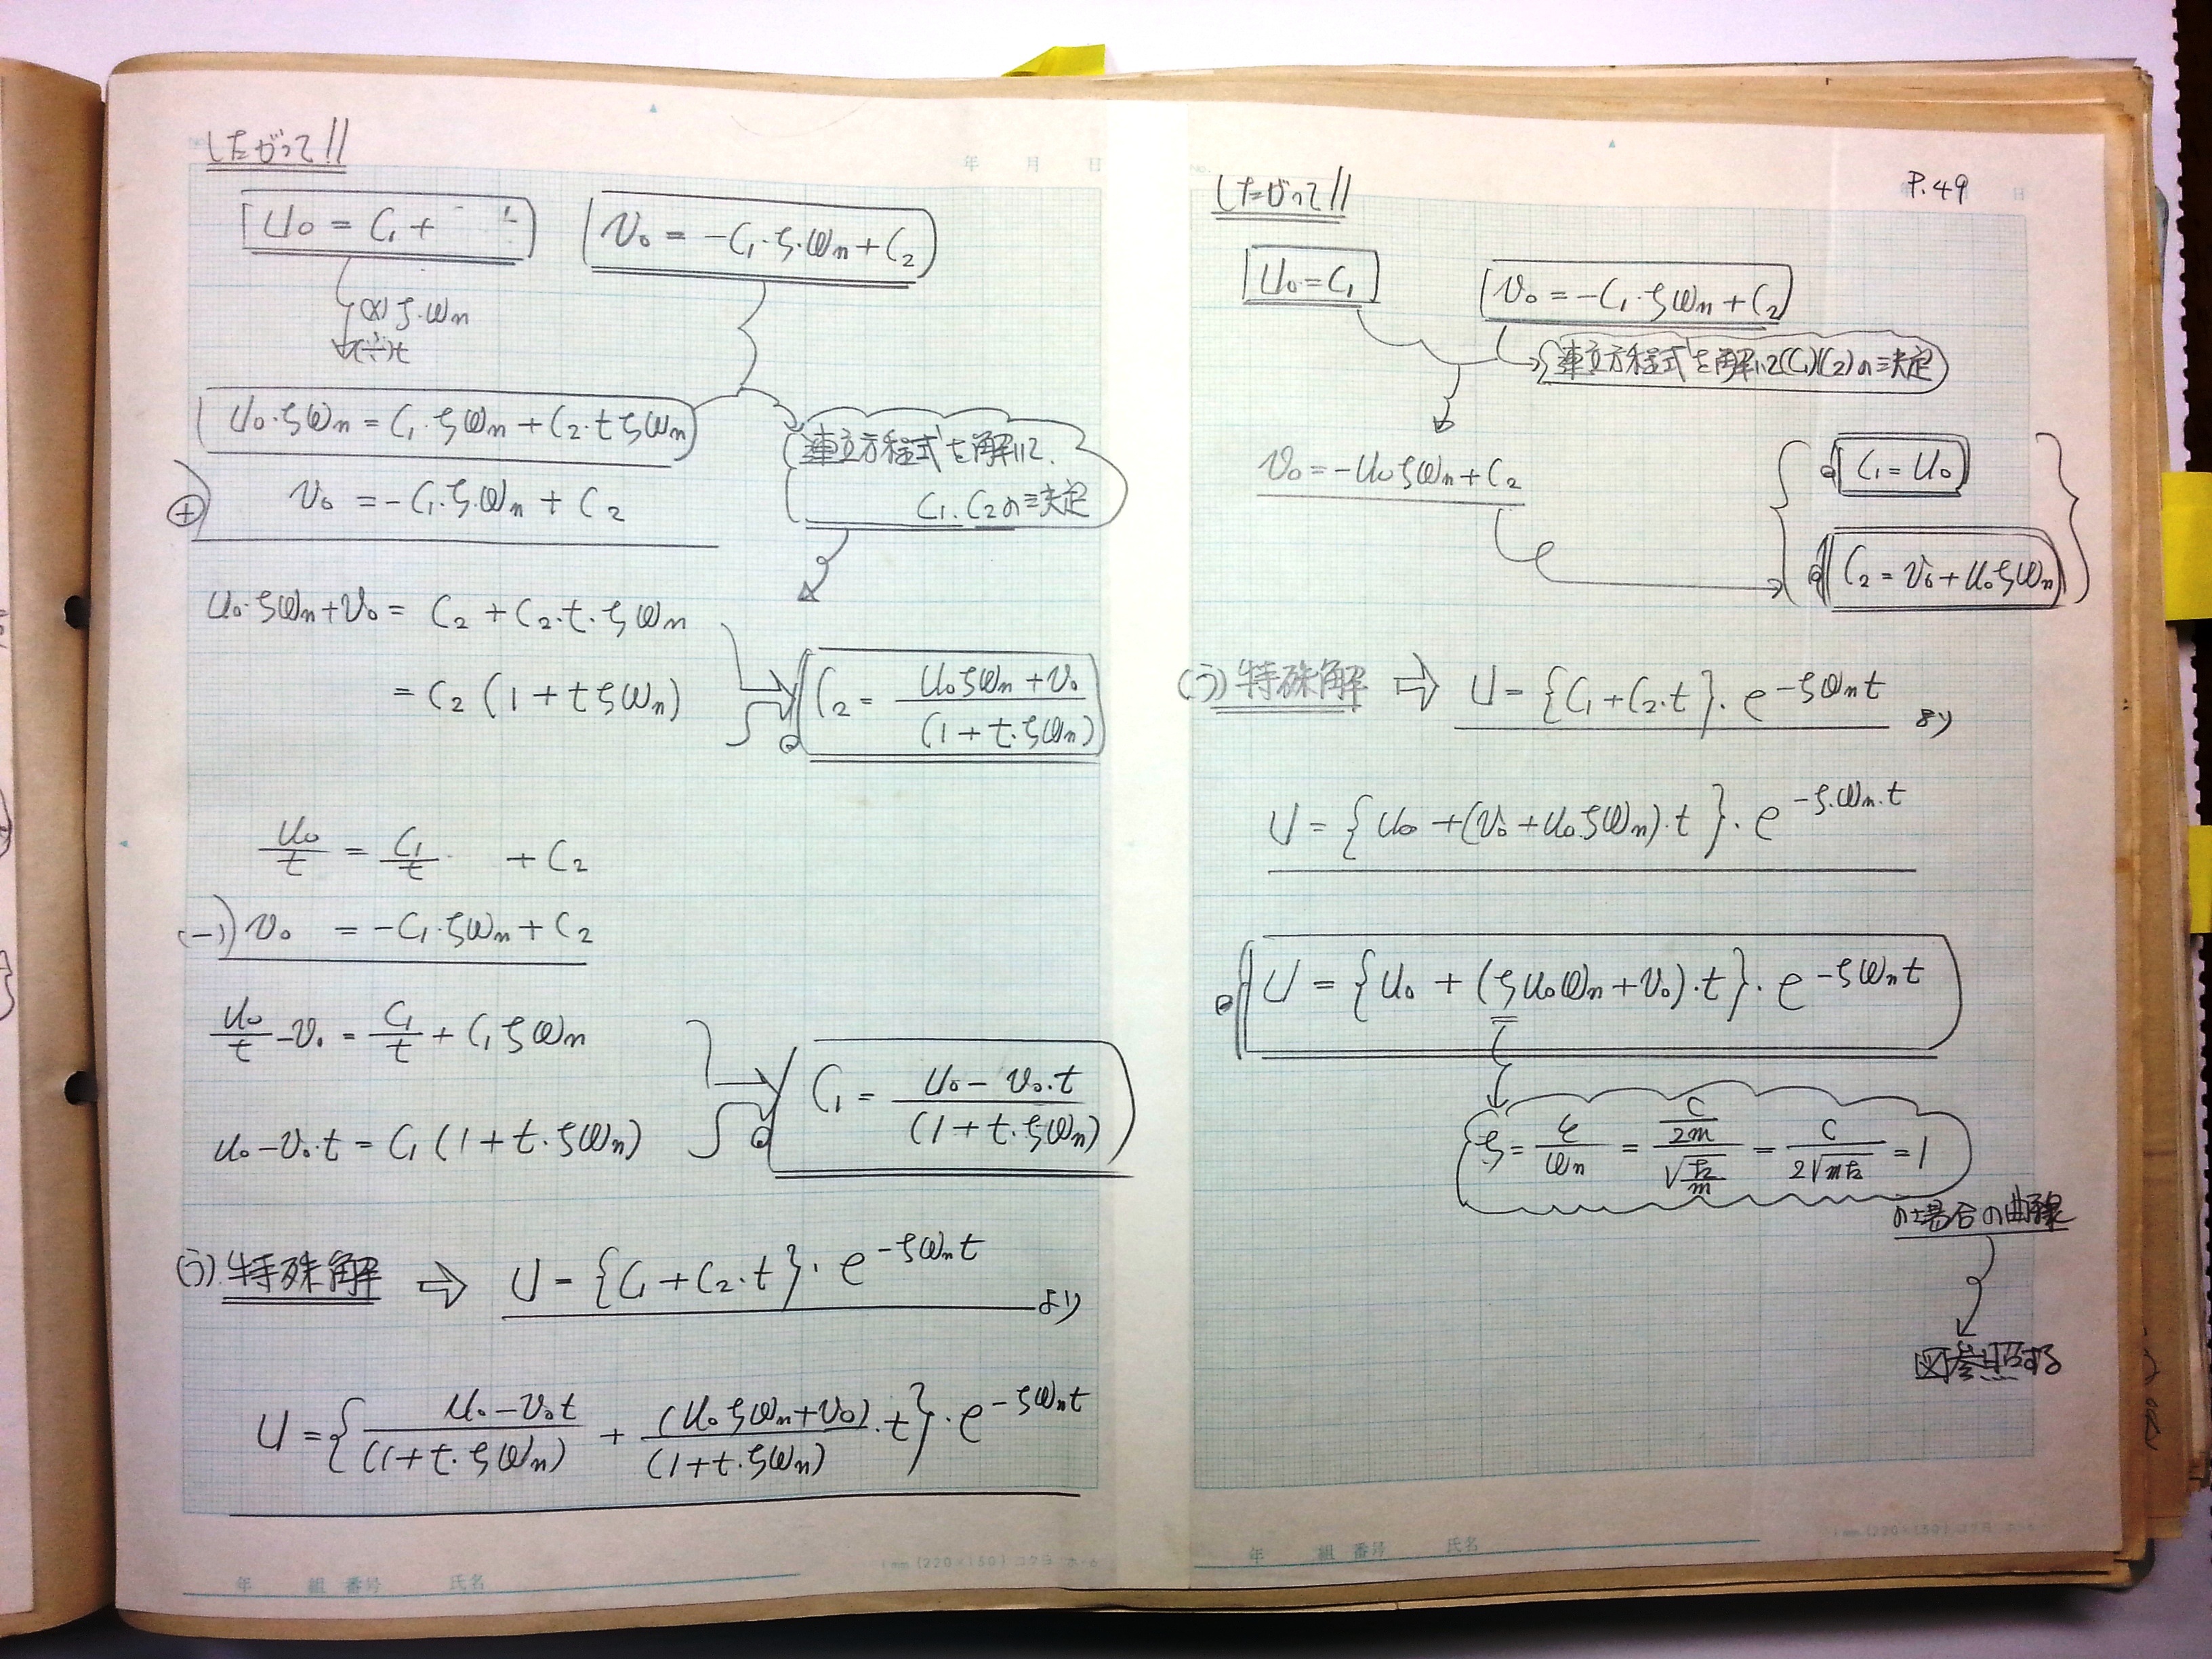 したがって!!
U₀ = C₁ +
V₀ = -C₁·ζ·ωn + C₂
(×) ζ·ωn
(÷) t
U₀·ζωn = C₁·ζωn + C₂·t ζωn
連立方程式を解いて、
C₁、C₂の決定
⊕) V₀ = -C₁·ζ·ωn + C₂
U₀·ζωn + V₀ = C₂ + C₂·t·ζωn
= C₂ (1 + tζωn)
C₂ = (U₀ζωn + V₀)/(1 + t·ζωn)
U₀/t = C₁/t + C₂
(-) V₀ = -C₁·ζωn + C₂
U₀/t - V₀ = C₁/t + C₁ζωn
U₀ - V₀·t = C₁ (1 + t·ζωn)
C₁ = (U₀ - V₀·t)/(1 + t·ζωn)
(う) 特殊解 ⇨ U = {C₁ + C₂·t}·e^(-ζωnt) より
U = {(U₀ - V₀t)/(1 + t·ζωn) + (U₀ζωn + V₀)/(1 + t·ζωn)·t}·e^(-ζωnt)
年 組 番号 氏名
年 月 日
1mm (220×150) コクヨ ホ-6
したがって!!
P.49
日
U₀ = C₁
V₀ = -C₁·ζωn + C₂
連立方程式を解いて(C₁)(C₂)の決定
V₀ = -U₀ζωn + C₂
C₁ = U₀
C₂ = V₀ + U₀ζωn
(う) 特殊解 ⇨ U = {C₁ + C₂·t}·e^(-ζωnt) より
U = {U₀ + (V₀ + U₀·ζωn)·t}·e^(-ζ·ωn·t)
U = {U₀ + (ζU₀ωn + V₀)·t}·e^(-ζωnt)
ζ = ε/ωn = (C/2m)/√(k/m) = C/(2√mk) = 1
の場合の曲線
図参照する
年 組 番号 氏名
1mm (220×150) コクヨ ホ-6